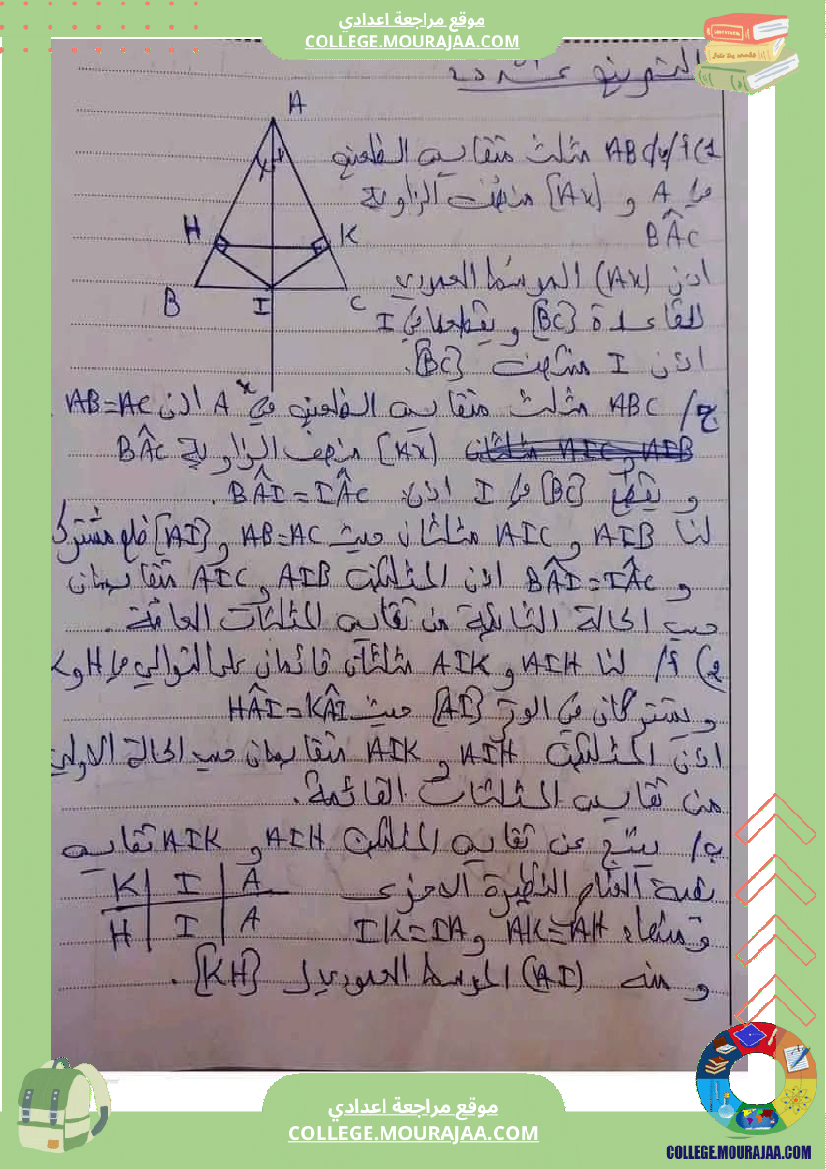 موقع مراجعة اعدادي
COLLEGE.MOURAJAA.COM
التمرين عـــدد
A
1) أ/ب/ ABC مثلث متقايس الضلعين
في A و [Ax) منصف الزاوية
BÂC
H K
اذن (Ax) الموسط العمودي
B I C
للقاعدة [BC] و يقطعها في I
اذن I منتصف [BC].
x
ج/ ABC مثلث متقايس الضلعين في A اذن AB=AC
[Ax) منصف الزاوية BÂC
و يقطع [BC] في I اذن: BÂI=IÂC.
لنا AIB و AIC مثلثان حيث AB=AC و [AI] ضلع مشترك
و BÂI=IÂC اذن المثلثين AIB و AIC متقايسان
حسب الحالة الثانية من تقايس المثلثات العامة.
2) أ/ لنا AIH و AIK مثلثان قائمان على التوالي في H و K
و يشتركان في الوتر [AI] حيث HÂI=KÂI
اذن المثلثين AIH و AIK متقايسان حسب الحالة الاولى
من تقايس المثلثات القائمة.
ب/ ينتج عن تقايس المثلثين AIH و AIK تقايس
بقية العناصر النظيرة الاخرى
K I A
H I A
و منها AK=AH و IK=IH
و منه (AI) الموسط العمودي لـ [KH].
موقع مراجعة اعدادي
COLLEGE.MOURAJAA.COM
COLLEGE.MOURAJAA.COM